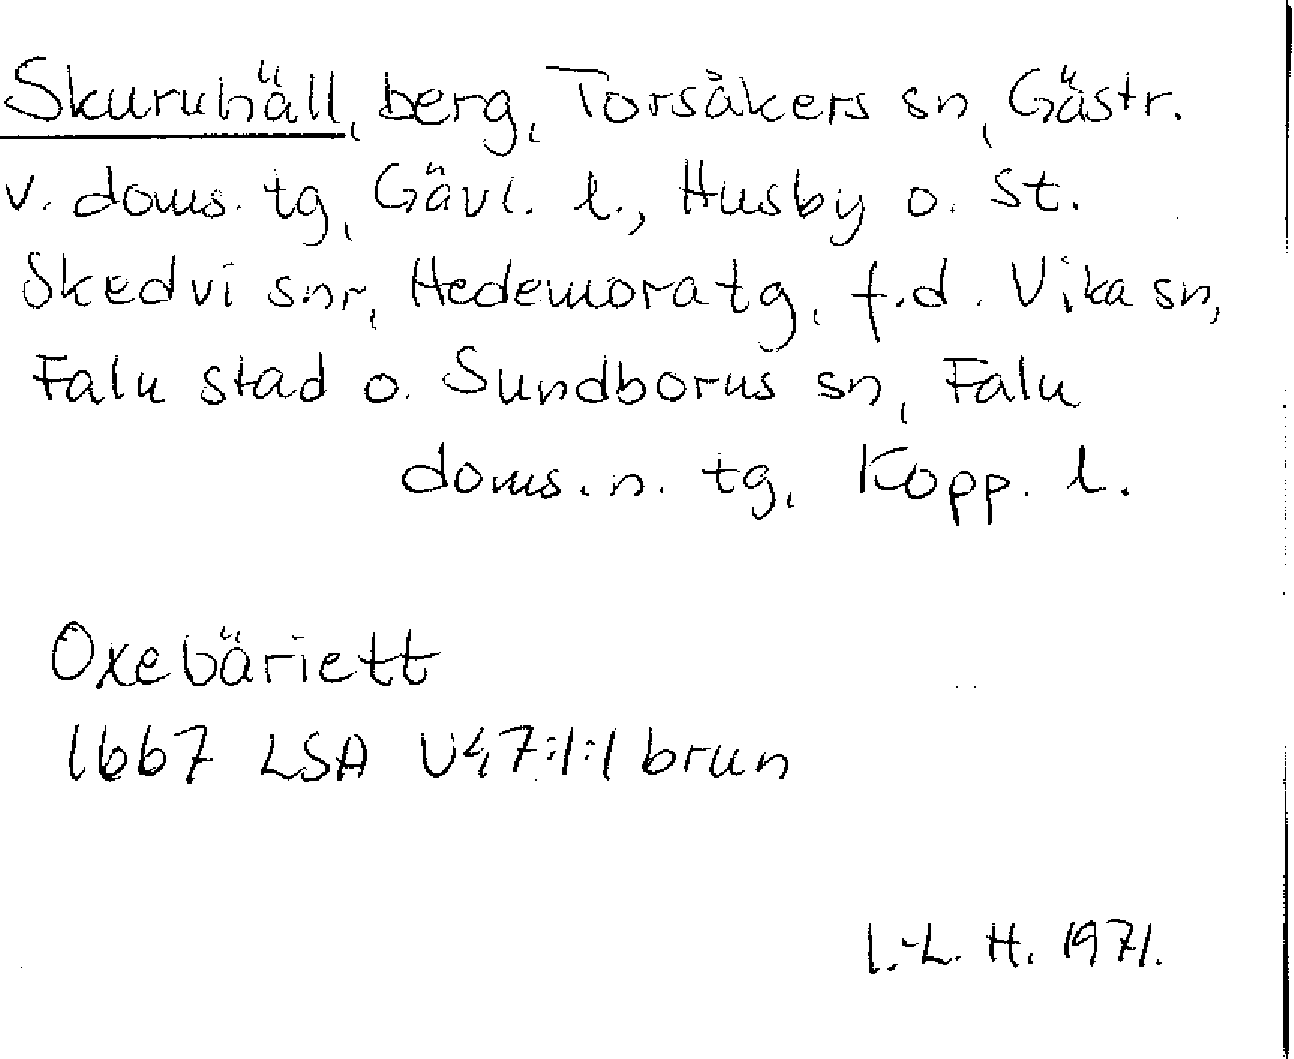 Skuruhäll, berg, Torsåkers sn, Gästr.
v. doms. tg, Gävl. l., Husby o. St.
Skedvi snr, Hedemora tg, f.d. Vika sn,
Falu stad o. Sundborns sn, Falu
doms. n. tg, Kopp. l.
Oxebäriett
1667 LSA U47:1:1 brun
I.-L. H. 1971.